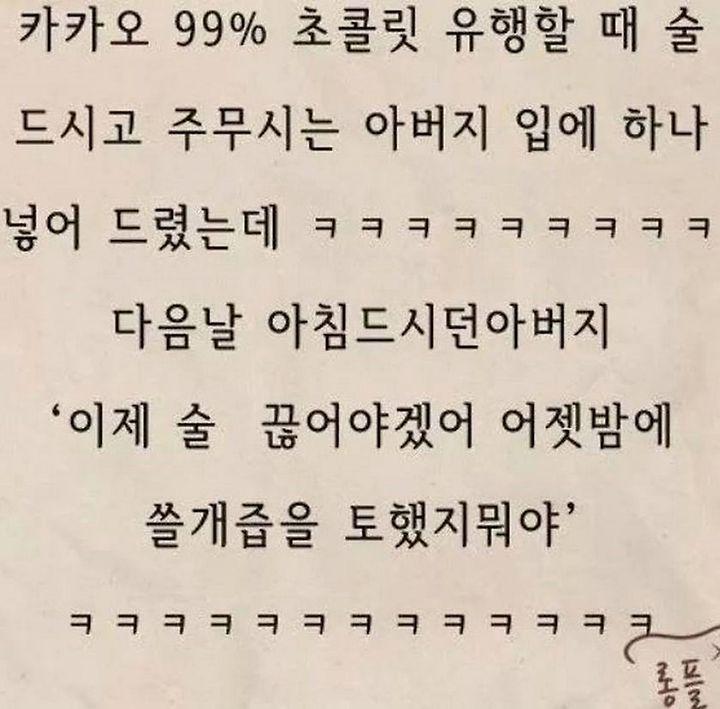 카카오 99% 초콜릿 유행할 때 술
드시고 주무시는 아버지 입에 하나
넣어 드렸는데 ㅋㅋㅋㅋㅋㅋㅋㅋㅋ
다음날 아침드시던아버지
‘이제 술  끊어야겠어 어젯밤에
쓸개즙을 토했지뭐야’
ㅋㅋㅋㅋㅋㅋㅋㅋㅋㅋㅋㅋㅋ
롱플